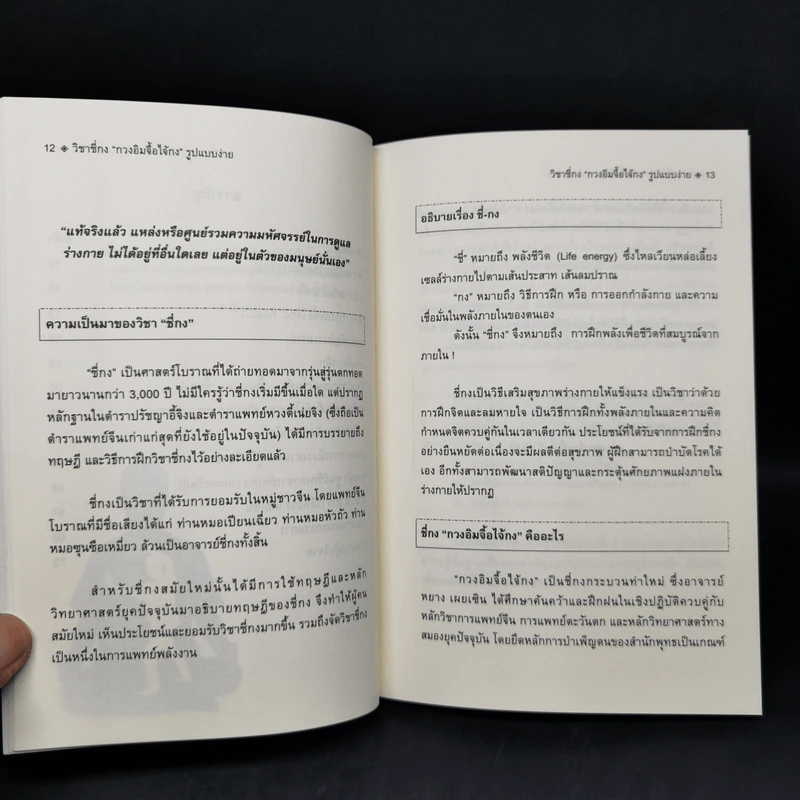 12 ◈ วิชาชี่กง "กวงอิมจื้อไจ้กง" รูปแบบง่าย
"แท้จริงแล้ว แหล่งหรือศูนย์รวมความมหัศจรรย์ในการดูแล
ร่างกาย ไม่ได้อยู่ที่อื่นใดเลย แต่อยู่ในตัวของมนุษย์นั่นเอง"
ความเป็นมาของวิชา "ชี่กง"
"ชี่กง" เป็นศาสตร์โบราณที่ได้ถ่ายทอดมาจากรุ่นสู่รุ่นตกทอด
มายาวนานกว่า 3,000 ปี ไม่มีใครรู้ว่าชี่กงเริ่มมีขึ้นเมื่อใด แต่ปรากฏ
หลักฐานในตำราปรัชญาอี้จิงและตำราแพทย์หวงตี้เน่ยจิง (ซึ่งถือเป็น
ตำราแพทย์จีนเก่าแก่สุดที่ยังใช้อยู่ในปัจจุบัน) ได้มีการบรรยายถึง
ทฤษฎี และวิธีการฝึกวิชาชี่กงไว้อย่างละเอียดแล้ว
ชี่กงเป็นวิชาที่ได้รับการยอมรับในหมู่ชาวจีน โดยแพทย์จีน
โบราณที่มีชื่อเสียงได้แก่ ท่านหมอเปียนเฉี่ยว ท่านหมอหัวถัว ท่าน
หมอซุนซือเหมี่ยว ล้วนเป็นอาจารย์ชี่กงทั้งสิ้น
สำหรับชี่กงสมัยใหม่นั้นได้มีการใช้ทฤษฎีและหลัก
วิทยาศาสตร์ยุคปัจจุบันมาอธิบายทฤษฎีของชี่กง จึงทำให้ผู้คน
สมัยใหม่ เห็นประโยชน์และยอมรับวิชาชี่กงมากขึ้น รวมถึงจัดวิชาชี่กง
เป็นหนึ่งในการแพทย์พลังงาน
วิชาชี่กง "กวงอิมจื้อไจ้กง" รูปแบบง่าย ◈ 13
อธิบายเรื่อง ชี่-กง
"ชี่" หมายถึง พลังชีวิต (Life energy) ซึ่งไหลเวียนหล่อเลี้ยง
เซลล์ร่างกายไปตามเส้นประสาท เส้นลมปราณ
"กง" หมายถึง วิธีการฝึก หรือ การออกกำลังกาย และความ
เชื่อมั่นในพลังภายในของตนเอง
ดังนั้น "ชี่กง" จึงหมายถึง การฝึกพลังเพื่อชีวิตที่สมบูรณ์จาก
ภายใน !
ชี่กงเป็นวิธีเสริมสุขภาพร่างกายให้แข็งแรง เป็นวิชาว่าด้วย
การฝึกจิตและลมหายใจ เป็นวิธีการฝึกทั้งพลังภายในและความคิด
กำหนดจิตควบคู่กันในเวลาเดียวกัน ประโยชน์ที่ได้รับจากการฝึกชี่กง
อย่างยืนหยัดต่อเนื่องจะมีผลดีต่อสุขภาพ ผู้ฝึกสามารถบำบัดโรคได้
เอง อีกทั้งสามารถพัฒนาสติปัญญาและกระตุ้นศักยภาพแฝงภายใน
ร่างกายให้ปรากฏ
ชี่กง "กวงอิมจื้อไจ้กง" คืออะไร
"กวงอิมจื้อไจ้กง" เป็นชี่กงกระบวนท่าใหม่ ซึ่งอาจารย์
หยาง เผยเซิน ได้ศึกษาค้นคว้าและฝึกฝนในเชิงปฏิบัติควบคู่กับ
หลักวิชาการแพทย์จีน การแพทย์ตะวันตก และหลักวิทยาศาสตร์ทาง
สมองยุคปัจจุบัน โดยยึดหลักการบำเพ็ญตนของสำนักพุทธเป็นเกณฑ์